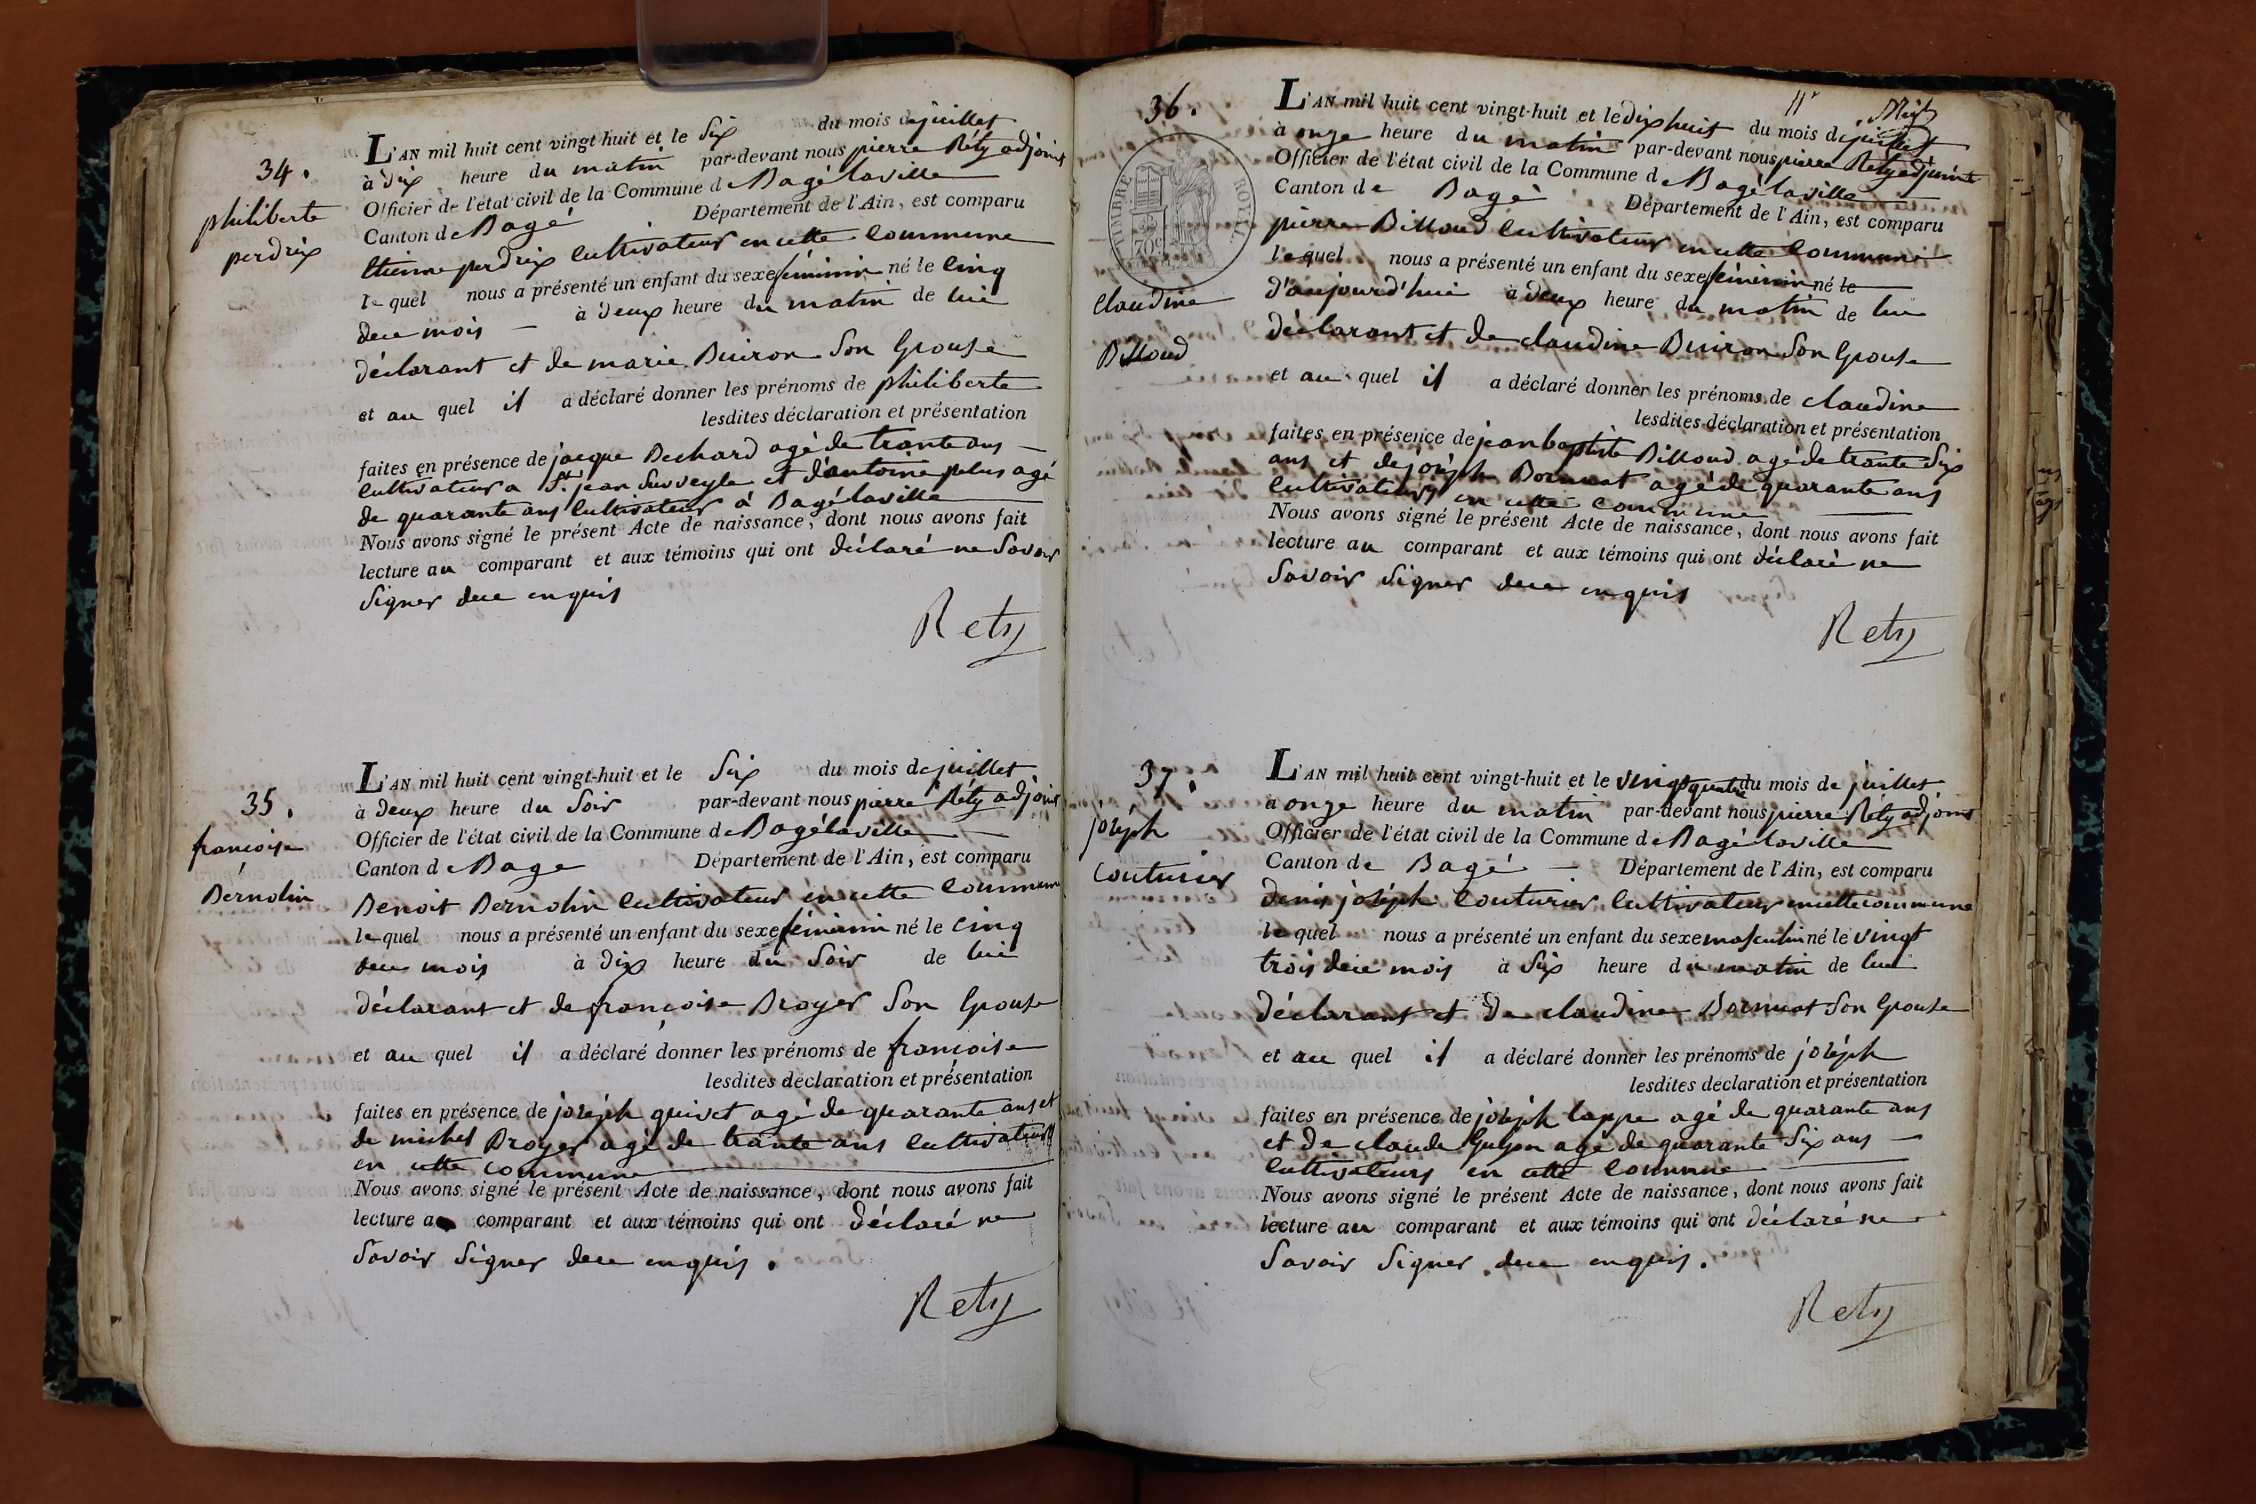 34.
philiberte
perdrix
L'AN mil huit cent vingt-huit et le Six du mois de juillet
à dix heure du matin par-devant nous pierre Réty adjoint
Officier de l'état civil de la Commune de Bagé laville
Canton de Bagé Département de l'Ain, est comparu
Etienne perdrix Cultivateur en cette Commune
le quel nous a présenté un enfant du sexe féminin né le Cinq
duce mois à deux heure du matin de lui
déclarant et de marie Buiron Son Epouse
et au quel il a déclaré donner les prénoms de philiberte
lesdites déclaration et présentation
faites en présence de jacque Bechard agé de trante ans
Cultivateur a St jean Surveyle et d'antoine pelus agé
de quarante ans Cultivateur à Bagé laville
Nous avons signé le présent Acte de naissance, dont nous avons fait
lecture au comparant et aux témoins qui ont déclaré ne Savoir
Signer dece enquis
Rety
35.
francoise
Bernolin
L'AN mil huit cent vingt-huit et le Six du mois de juillet
à deux heure du Soir par-devant nous pierre Réty adjoint
Officier de l'état civil de la Commune de Bagé laville
Canton de Bage Département de l'Ain, est comparu
Benoit Bernolin Cultivateur en cette Commune
le quel nous a présenté un enfant du sexe féminin né le Cinq
duce mois à dix heure du Soir de lui
déclarant et de françoise Broyer Son Epouse
et au quel il a déclaré donner les prénoms de francoise
lesdites déclaration et présentation
faites en présence de joséph guivet agé de quarante ans et
de michel Broyer agé de trante ans Cultivateurs
en cette Commune
Nous avons signé le présent Acte de naissance, dont nous avons fait
lecture au comparant et aux témoins qui ont déclaré ne
Savoir Signer dece enquis.
Rety
11e
36.
TIMBRE ROYAL
70c
Claudine
Billoud
L'AN mil huit cent vingt-huit et le dix huit du mois de juillet
à onze heure du matin par-devant nous pierre Rety adjoint
Officier de l'état civil de la Commune de Bagé laville
Canton de Bagé Département de l'Ain, est comparu
pierre Billoud Cultivateur en cette Commune
le quel nous a présenté un enfant du sexe féminin né le
d'aujourd'hui à deux heure du matin de lui
déclarant et de claudine Buiron Son Epouse
et au quel il a déclaré donner les prénoms de claudine
lesdites déclaration et présentation
faites en présence de jean baptiste Billoud agé de trante Six
ans et de joséph Bornuat agé de quarante ans
Cultivateurs en cette Commune
Nous avons signé le présent Acte de naissance, dont nous avons fait
lecture au comparant et aux témoins qui ont déclaré ne
Savoir Signer dece enquis
Rety
37.
joséph
Couturier
L'AN mil huit cent vingt-huit et le vingt quatre du mois de juillet
à onze heure du matin par-devant nous pierre Réty adjoint
Officier de l'état civil de la Commune de Bagé laville
Canton de Bagé Département de l'Ain, est comparu
denis joséph Couturier Cultivateur en cette Commune
le quel nous a présenté un enfant du sexe masculin né le vingt
trois duce mois à Six heure du matin de lui
déclarant et de claudine Bornuat Son Epouse
et au quel il a déclaré donner les prénoms de joséph
lesdites déclaration et présentation
faites en présence de joséph lappe agé de quarante ans
et de claude Guyon agé de quarante Six ans
Cultivateurs en cette Commune
Nous avons signé le présent Acte de naissance, dont nous avons fait
lecture au comparant et aux témoins qui ont déclaré ne
Savoir Signer dece enquis.
Rety